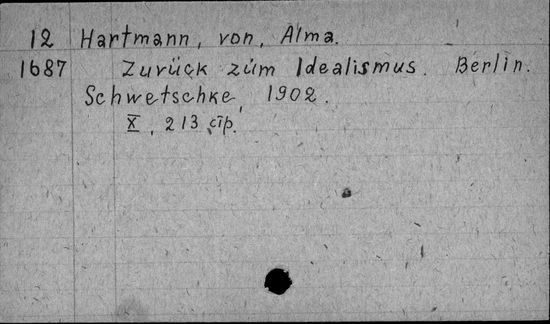 12 Hartmann, von, Alma.
1687 Zurück zum Idealismus. Berlin.
Schwetschke, 1902.
X, 213 стр.